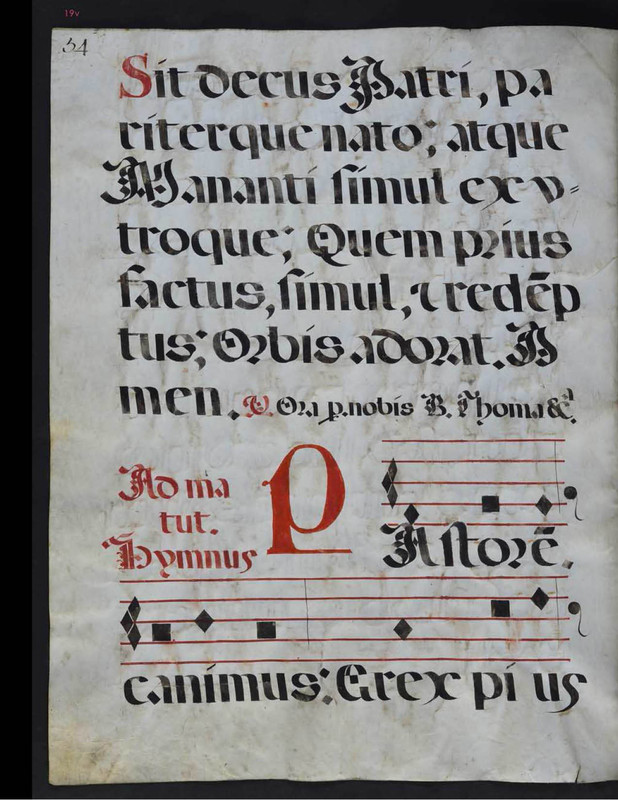 19v
54
Sit decus Patri, pa
riterque nato; atque
Mananti simul ex v=
troque; Quem prius
factus, simul, & redēp
tus; Orbis adorat. A
men. V. Ora p. nobis B. Thoma &c.
Ad ma
tut.
Hymnus
P
Astorē.
canimus: Grex pi us